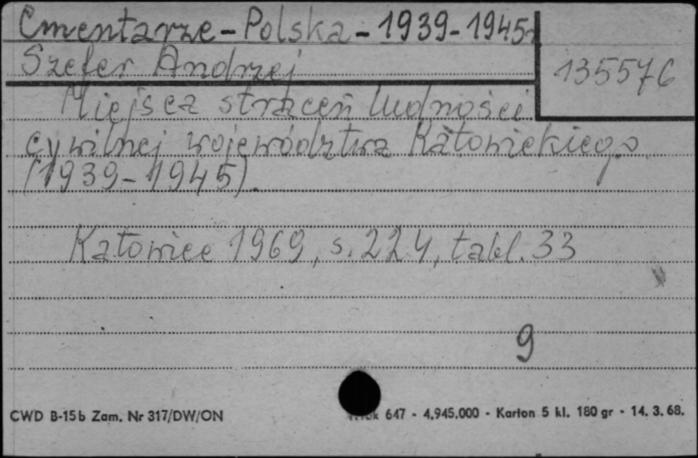 Cmentarze - Polska - 1939-1945r
Szefer Andrzej
135576
Miejsca straceń ludności
cywilnej województwa Katowickiego
(1939-1945).
Katowice 1969, s. 224, tabl. 33
9
CWD B-15b Zam. Nr 317/DW/ON
647 - 4.945.000 - Karton 5 kl. 180 gr - 14. 3. 68.